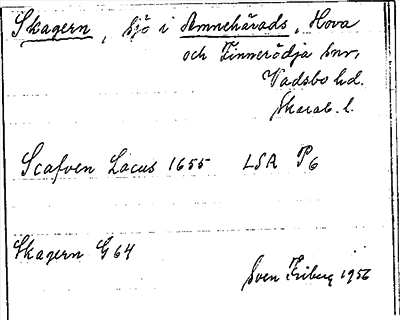 Skagern, sjö i Amnehärads, Hova
och Finnerödja snr,
Vadsbo hd.
Skarab. l.
Scafven Lacus 1655 LSA P6
Skagern G 64
Sven Friberg 1956